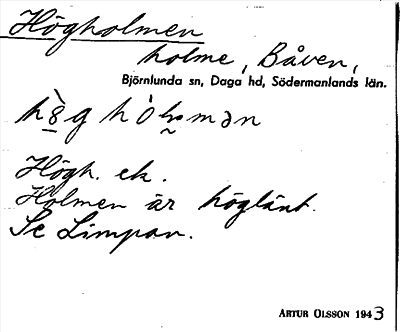 Högholmen
holme, Båven,
Björnlunda sn, Daga hd, Södermanlands län.
Högh. ek.
Holmen är höglänt.
Se Limpan.
ARTUR OLSSON 1943